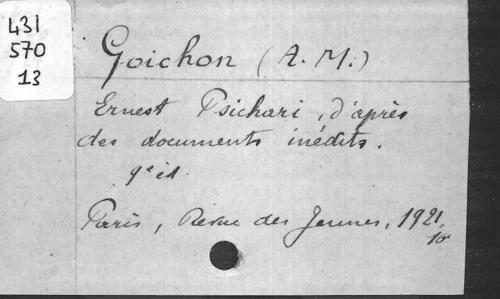 431
570
13
Goichon (A. M.)
Ernest Psichari, d'après
des documents inédits.
Paris, Revue des Jeunes, 1921,